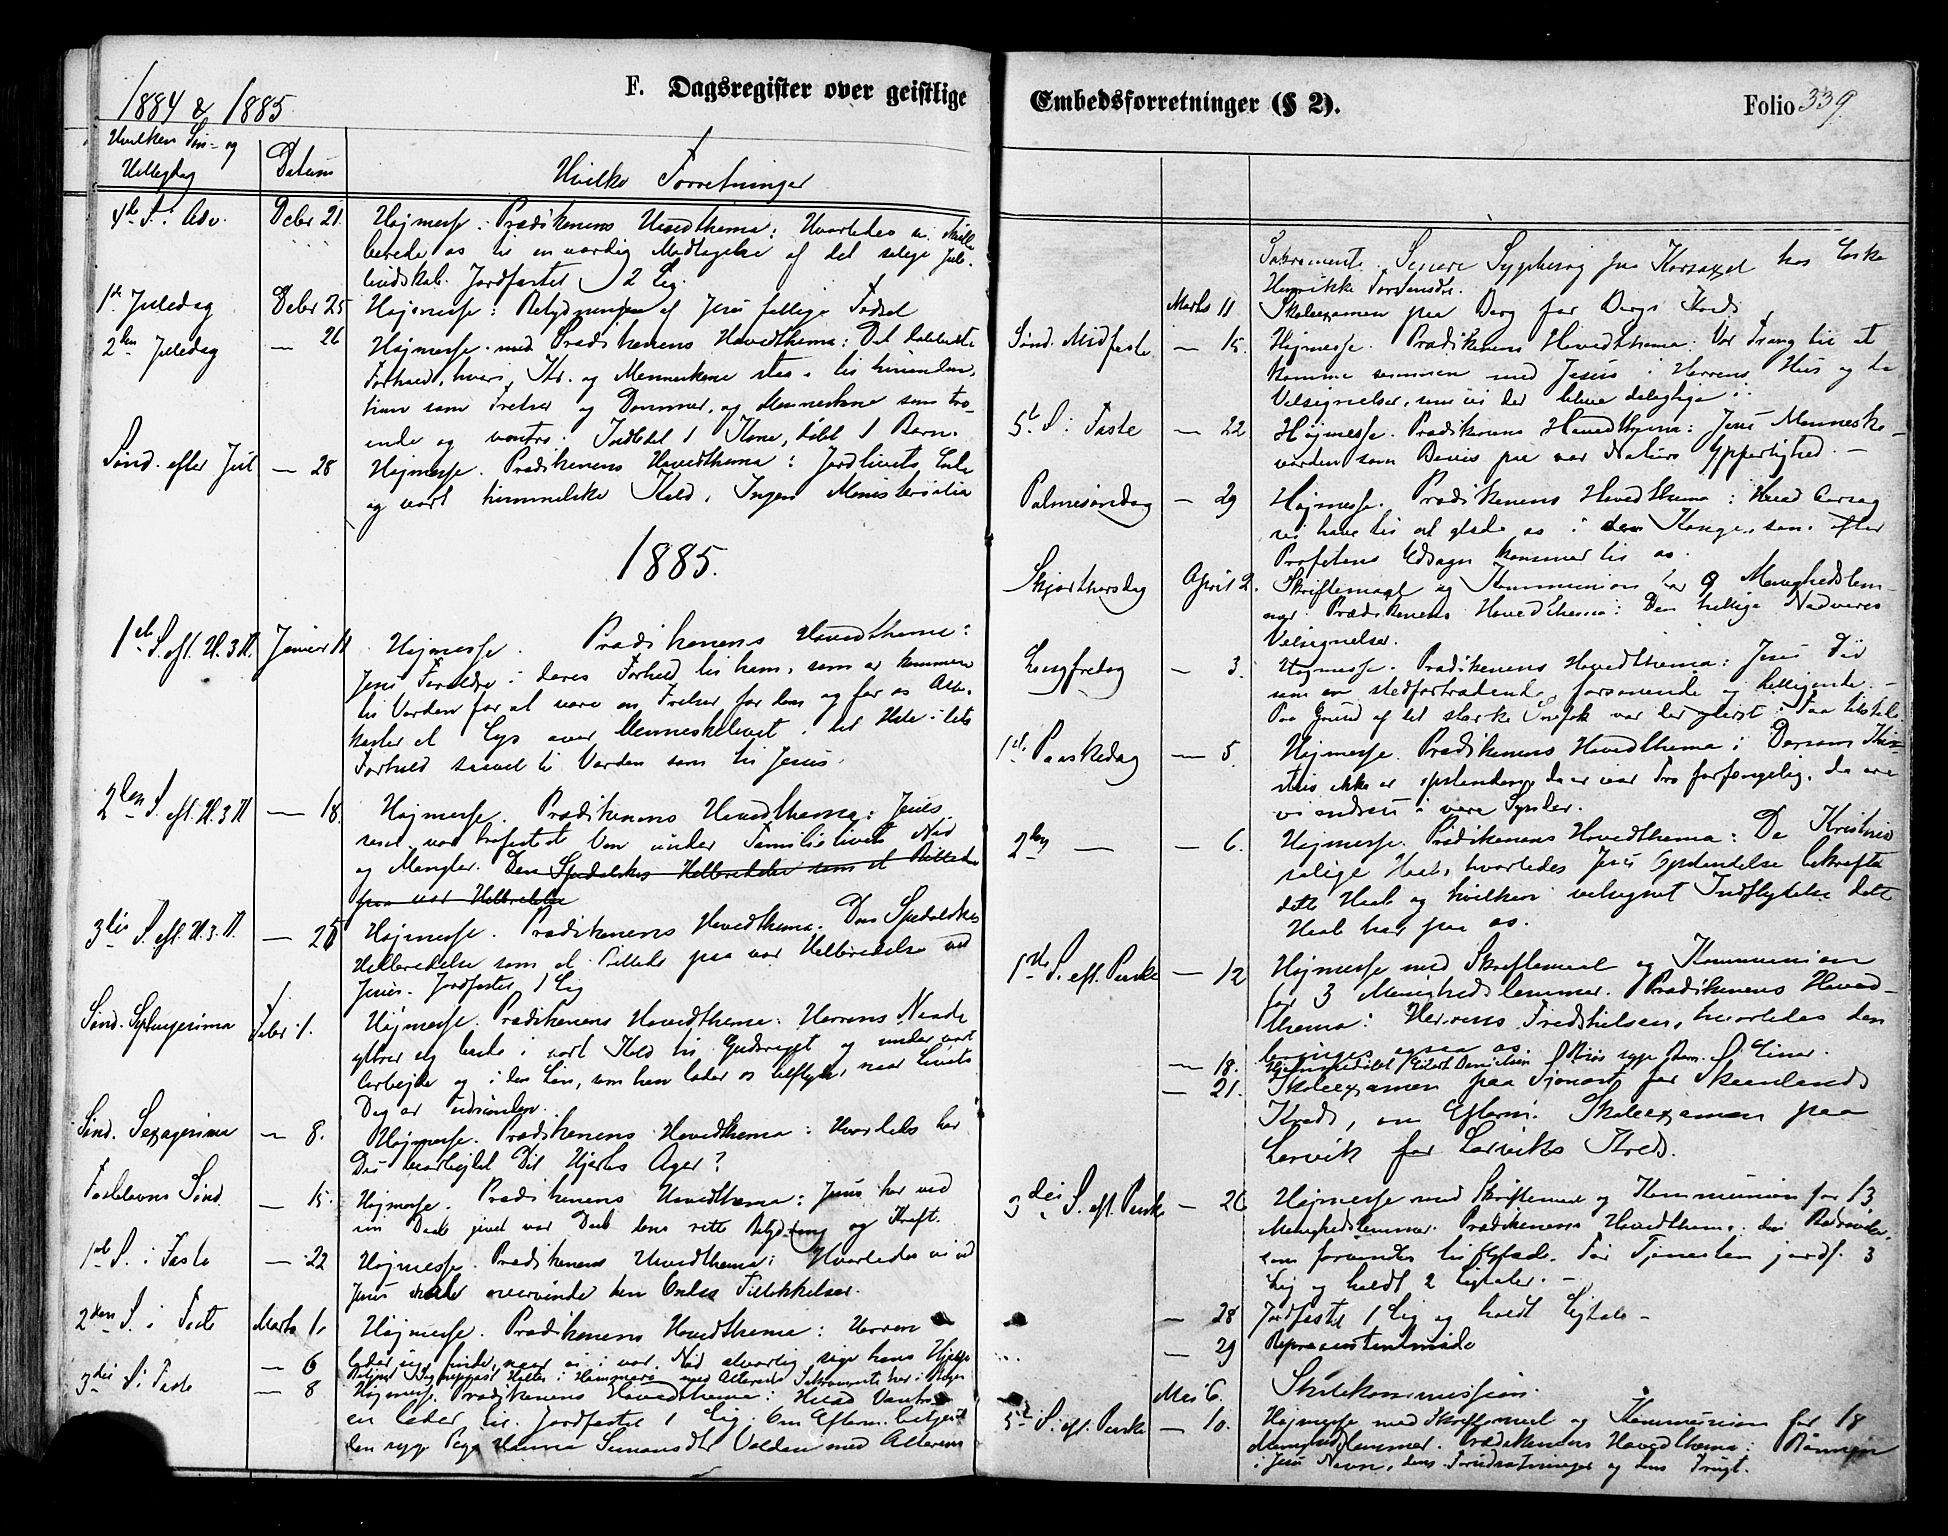 1884 & 1885.
F. Dagsregister over geistlige
Hvilken Søn- og
Helligdag
Datum
Hvilke Forretninger
4de S. i Adv.
Decbr 21.
Højmesse. Prædikenens Hovedthema: Hvorledes vi skulle
berede os til en værdig Modtagelse af det salige Jule-
budskab. Jordfæstet 2 Lig.
1ste Juledag
Decbr 25
Højmesse: Betydningen af Jesu fattige Fødsel
2den Juledag
— 26
Højmesse med Prædikenens Hovedthema: Det dobbelte
Forhold, hvori Kr. og Menneskene staa til hinanden,
han som Frelser og Dommer, og Menneskene som tro-
ende og vantro. Indledet 1 Kone, døbt 1 Barn.
Sønd. efter Jul
— 28
Højmesse. Prædikenens Hovedthema: Jordlivets
og vort himmelske Kald. Ingen Ministerialia
1885.
1ste S. eft. H. 3 K.
Januar 11
Højmesse. Prædikenens Hovedthema:
Jesu Forældre i deres Forhold til ham, som er kommen
til Verden for at være en Frelser for dem og for os Alle,
kaster et Lys over Menneskelivet i det Hele i dets
Forhold saavel til Verden som til Jesus.
2den S. eft. H. 3 K
— 18.
Højmesse. Prædikenens Hovedthema: Jesus
som vor trofaste Ven under Familielivets Nød
og Mangler. Den Spedalskes Helbredelse som et Billede
paa vor Helbredelse
3die S. eft. H. 3. K.
— 25
Højmesse. Prædikenens Hovedthema. Den Spedalskes
Helbredelse som et Billede paa vor Helbredelse ved
Jesus. Jordfæstet 1 Lig
Sønd. Septuagesima
Febr 1.
Højmesse. Prædikenens Hovedthema: Herrens Naade
ytrer sig baade i vort Kald til Gudsriget og under vort
Arbejde og i den Løn, som han lader os tilflyde, naar Livets
Dag er udrunden.
Sønd. Sexagesima
— 8.
Højmesse. Prædikenens Hovedthema: Hvorledes har
Du bearbejdet Dit Hjertes Ager?
Fastelavns Sønd.
— 15.
Højmesse. Prædikenens Hovedthema: Jesus har ved
sin Daab givet vor Daab dens rette Betydning og Kraft.
1ste S. i Faste
— 22
Højmesse. Prædikenens Hovedthema: Hvorledes vi ved
Jesus skulle overvinde den Ondes Tillokkelser.
2den S. i Faste
Marts 1.
Højmesse. Prædikenens Hovedthema: Herren
lader sig finde, naar vi i vor Nød alvorlig søge hans Hjælp
— 6
3die S. i Faste
— 8
Højmesse. Prædikenens Hovedthema: Hvad Vantro-
en leder til. Jordfæstet 1 Lig. Om Efterm. betjent
den syge Pige Hanna Simonsdtr Volden med Alterens
Embedsforretninger (§ 2).
Folio 339.
Sakrament. Senere Sygebesøg paa Korsaxel hos Enke
Henrikke
Marts 11
Skoleexamen paa Berg for Bergs Kreds
Sønd. Midfaste
— 15.
Højmesse. Prædikenens Hovedthema: Vor Trang til at
komme sammen med Jesus i Herrens Hus og de
Velsignelser, som vi der blive delagtige i.
5te S. i Faste
— 22
Højmesse. Prædikenens Hovedthema: Jesu Menneske-
vorden som Bevis paa vor Naturs Ypperlighed. —
Palmesøndag
— 29
Højmesse. Prædikenens Hovedthema: Hvad Aarsag
vi have til at glæde os i den Konge, som efter
Profetens Udsagn kommer til os.
Skjærthorsdag
April 2.
Skriftemaal og Kommunion for 9 Menighedslem-
mer. Prædikenens Hovedthema: Den hellige Nadveres
Velsignelser.
Langfredag
— 3.
Højmesse. Prædikenens Hovedthema: Jesu Død
som en stedfortrædende, forsonende og helligende. —
Paa Grund af det stærke Snefok var der yderst Faa tilstede.
1ste Paaskedag
— 5.
Højmesse. Prædikenens Hovedthema: Dersom Kris-
tus ikke er opstanden, da er vor Tro forfængelig, da ere
vi endnu i vore Synder.
2den —
— 6.
Højmesse. Prædikenens Hovedthema: De Kristnes
salige Haab, hvorledes Jesu Opstandelse bekræfter
dette Haab og hvilken velsignet Indflydelse dette
Haab har paa os.
1ste S. eft. Paaske
— 12
Højmesse med Skriftemaal og Kommunion
for 3 Menighedslemmer. Prædikenens Hoved-
thema: Herrens Fredshilsen, hvorledes den
bringes ogsaa os.
— 18.
— 21.
Skoleexamen paa for Skaanlands
Kreds, om Efterm. Skoleexamen paa
Lervik for Lerviks Kreds.
3die S. eft. Paaske
— 26
Højmesse med Skriftemaal og Kommunion for 13
Menighedslemmer. Prædikenens Hovedthema: den Bedrøvelse,
som forvandles til Glæde. Før Tjenesten jordf. 3
Lig og holdt 2 Ligtaler. —
— 28
Jordfæstet 1 Lig og holdt Ligtale —
— 29
Repræsentantmøde
Mai 6.
Skolekommission.
5te S. eft. Paaske
— 10.
Højmesse med Skriftemaal og Kommunion for 18
Menighedslemmer. Prædikenens Hovedthema: Bønnen
i Jesu Navn, dens Forudsætninger og dens Frugt.